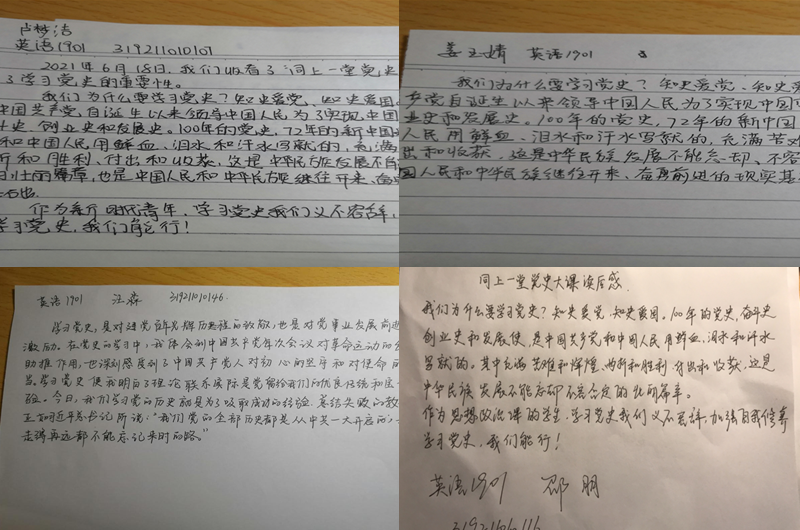 卢梦洁
英语1901 319211010107
2021年6月18日，我们收看了《同上一堂党史
了学习党史的重要性。
我们为什么要学习党史？知史爱党、知史爱国。
中国共产党自诞生以来领导中国人民为了实现中国
史，创业史和发展史。100年的党史，72年的新中国
和中国人民用鲜血、泪水和汗水写就的，充满
折和胜利，付出和收获，这是中华民族发展不
壮丽篇章，也是中国人民和中华民族继往开来、奋
作为新时代青年，学习党史我们义不容辞，
学习党史，我们能行！
姜玉婧 英语1901
我们为什么要学习党史？知史爱党、知史爱
产党自诞生以来领导中国人民为了实现中国
业史和发展史。100年的党史，72年的新中国
人民用鲜血、泪水和汗水写就的，充满苦
出和收获，这是中华民族发展不能忘却、不容
国人民和中华民族继往开来、奋勇前进的现实基
英语1901 汪森 31921010146
学习党史，是对建党百年光辉历程的致敬，也是对党事业发展前进
激励。在党史的学习中，我体会到中国共产党历次会议对革命运动的
助推作用，也深刻感受到了中国共产党人对初心的坚守和对使命的
当。学习党史使我明白了理论联系实际是党留给我们的优良传统和宝
验。今日，我们学习党的历史就是为了吸取成功的经验，总结失败的教
正如习近平总书记所说："我们党的全部历史都是从中共一大开启的，
走得再远都不能忘记来时的路。"
同上一堂党史大课读后感
我们为什么要学习党史？知史爱党，知史爱国。100年的党史，奋斗史
创业史和发展使，是中国共产党和中国人民用鲜血，泪水和汗水
写就的。其中充满苦难和辉煌，曲折和胜利，付出和收获，这是
中华民族发展不能忘却不容否定的壮丽篇章。
作为思想政治课的学生，学习党史我们义不容辞，加强自我修养
学习党史，我们能行！
英语1901 邵朋